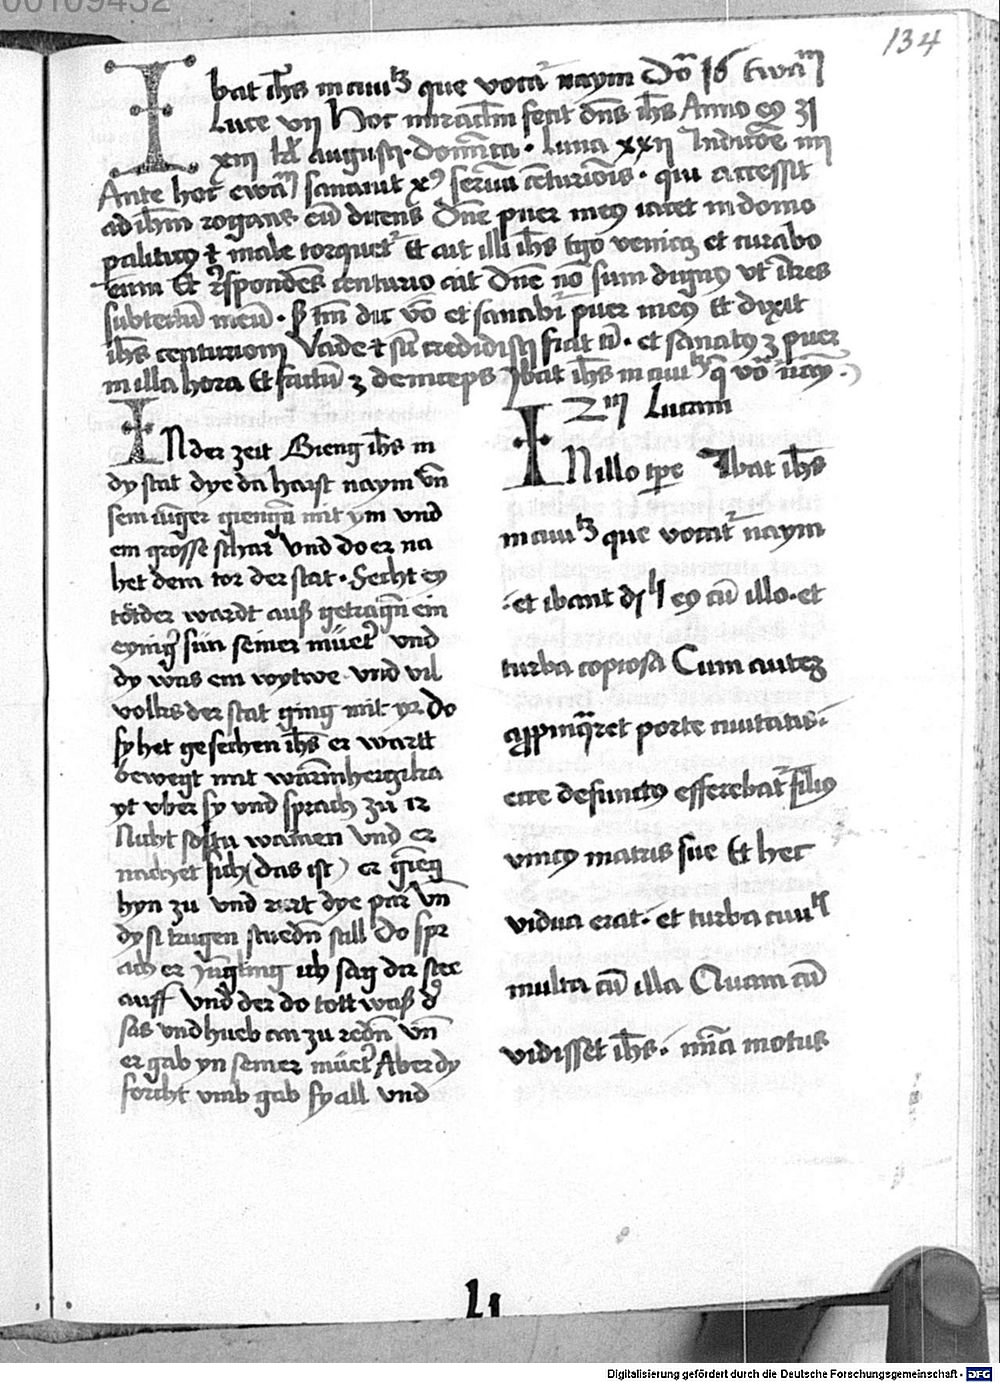 134
Ibat ih̄s in ciuitꝫ que vocat̄ naym Do 16 Ewā
Luce vij Hoc miraclm fecit dn̄s ih̄s Anno eꝰ 31
xiii kl augusti. domīca. luna xxii Indictōe iiii
Ante hoc ewā sanauit xpꝰ seruū cēturiōis. qui accessit
ad ih̄m rogans eū dicens Dn̄e puer meꝰ iacet in domo
paliticꝰ ⁊ male torquet̄ Et ait illi ih̄s Ego veniā et curabo
eum Et respondēs centurio ait Dn̄e nō sum dignꝰ vt ītres
sub tectū meū. sꝫ tm̄ dic vō et sanabit̄ puer meꝰ Et dixit
ih̄s centurioni Vade ⁊ sic̄ credidisti fiat ti. et sanatꝰ ꝫ puer
in illa hora Et factū ꝫ deinceps Ibat ih̄s in ciuitꝫ q̄ vō naȳ.
IN der zeit Gieng ih̄s in
dy stat dye da haist naym vn̄
sein iūger giengn̄ mit ym vnd
ein grosse schar Vnd do er na
het dem tor der stat. Secht ey
tötder wardt auß getragn̄ ein
eynigꝰ sün seiner müet̄ vnd
dy was ein wytwe vnd vil
volks der stat ging mit yr Do
sy het gesechen ih̄s er wartt
bewegt mit wārmhergika
yt vber sy vnd sprach zu ir
Nicht soltu wainen Vnd er
nachet sich (das ist) er gieng
hyn zu vnd rürt dye par Vn̄
dy si trugen stuedn̄ still Do spr
ach er Iūgling ich sag dir stee
auff Vnd der do tott waß d̄
sas vnd hueb an zu redn̄ vn̄
er gab yn seiner müet̄ Aber dy
forcht vmb gab sy all vnd
2m Lucam
IN illo tp̄e Ibat ih̄s
in ciuitꝫ que vocat̄ naym
et ibant di eꝰ cū illo. et
turba copiosa Cum autē
appinq̄ret porte ciuitatis.
ecce defunctꝰ efferebat̄ filiꝰ
vnicꝰ matris sue Et hec
vidua erat. et turba ciuitis
multa cū illa Quam cū
vidisset ih̄s. mīa motus
Digitalisierung gefördert durch die Deutsche Forschungsgemeinschaft - DFG